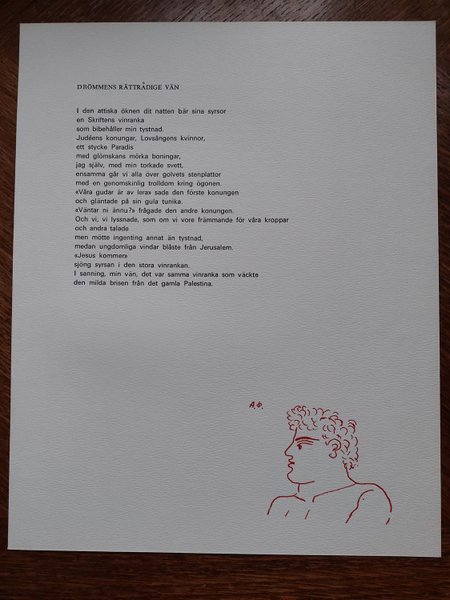 DRÖMMENS RÄTTRÅDIGE VÄN
I den attiska öknen dit natten bär sina syrsor
en Skriftens vinranka
som bibehåller min tystnad.
Judéens konungar, Lovsångens kvinnor,
ett stycke Paradis
med glömskans mörka boningar,
jag själv, med min torkade svett,
ensamma går vi alla över golvets stenplattor
med en genomskinlig trolldom kring ögonen.
«Våra gudar är av lera» sade den förste konungen
och gläntade på sin gula tunika.
«Väntar ni ännu?» frågade den andre konungen.
Och vi, vi lyssnade, som om vi vore främmande för våra kroppar
och andra talade
men mötte ingenting annat än tystnad,
medan ungdomliga vindar blåste från Jerusalem.
«Jesus kommer»
sjöng syrsan i den stora vinrankan.
I sanning, min vän, det var samma vinranka som väckte
den milda brisen från det gamla Palestina.
A.Φ.